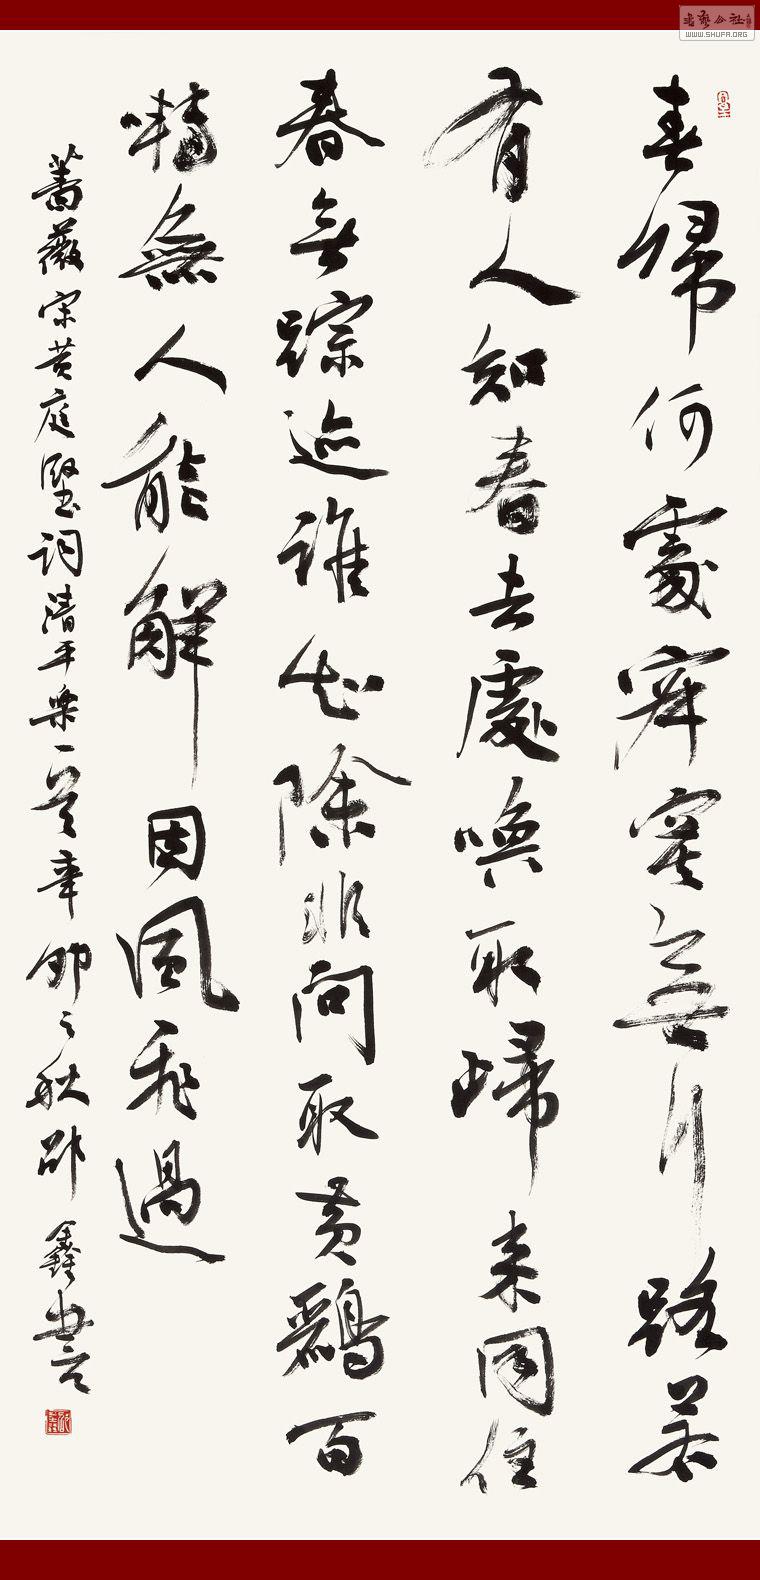 春歸何處寂寞無行路若
有人知春去處喚取歸來同住
春無踪迹誰知除非問取黄鸝百
囀無人能解因風飛過
薔薇宋黄庭堅詞清平樂一首辛卯之秋邵鑫書
書藝公社
WWW.SHUFA.ORG